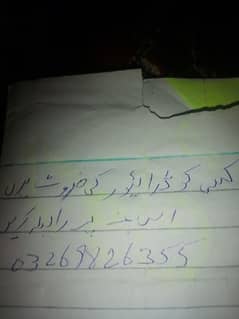 کسی کو ڈرائیور کی ضرورت ہوں
اس نمبر پر رابطہ کریں
03269826355